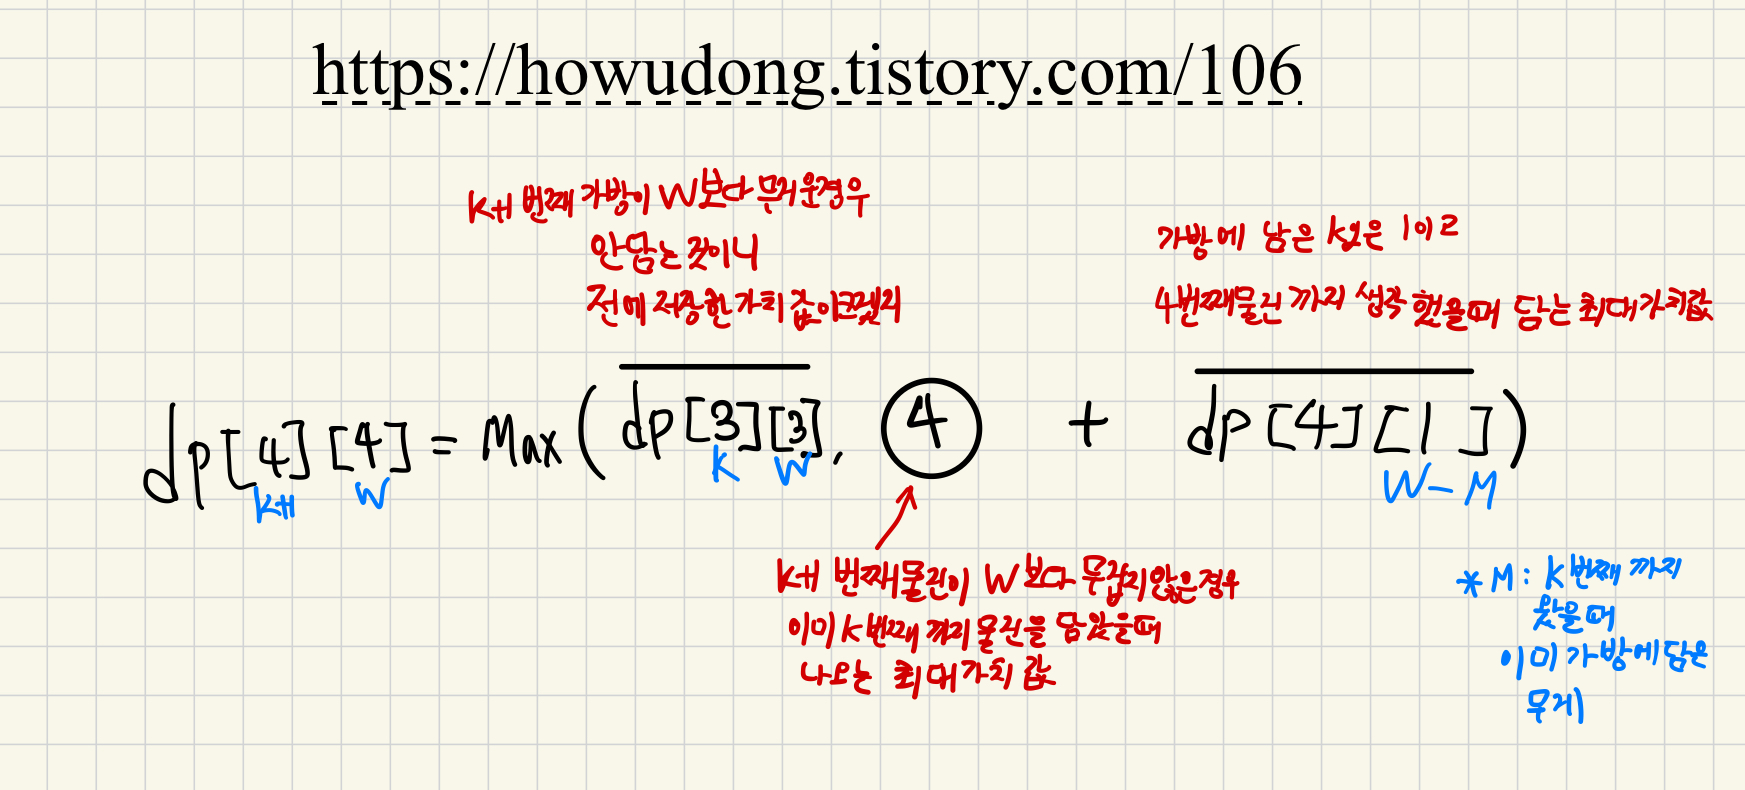 https://howudong.tistory.com/106
K+1 번째 가방이 W보다 무거운경우
안담는것이니
전에 저장한 가치 값이
가방에 남은 1이고
4번째물건 까지 생각 했을때 담는 최대가치값
dp[4][4] = Max(dp[3][3], 4 + dp[4][1])
K+1 W K W W-M
K+1 번째물건이 W보다 무겁지않은경우
이미 K번째 까지 물건을 담았을때
나오는 최대가치값
*M: K번째 까지
왔을때
이미 가방에담은
무게